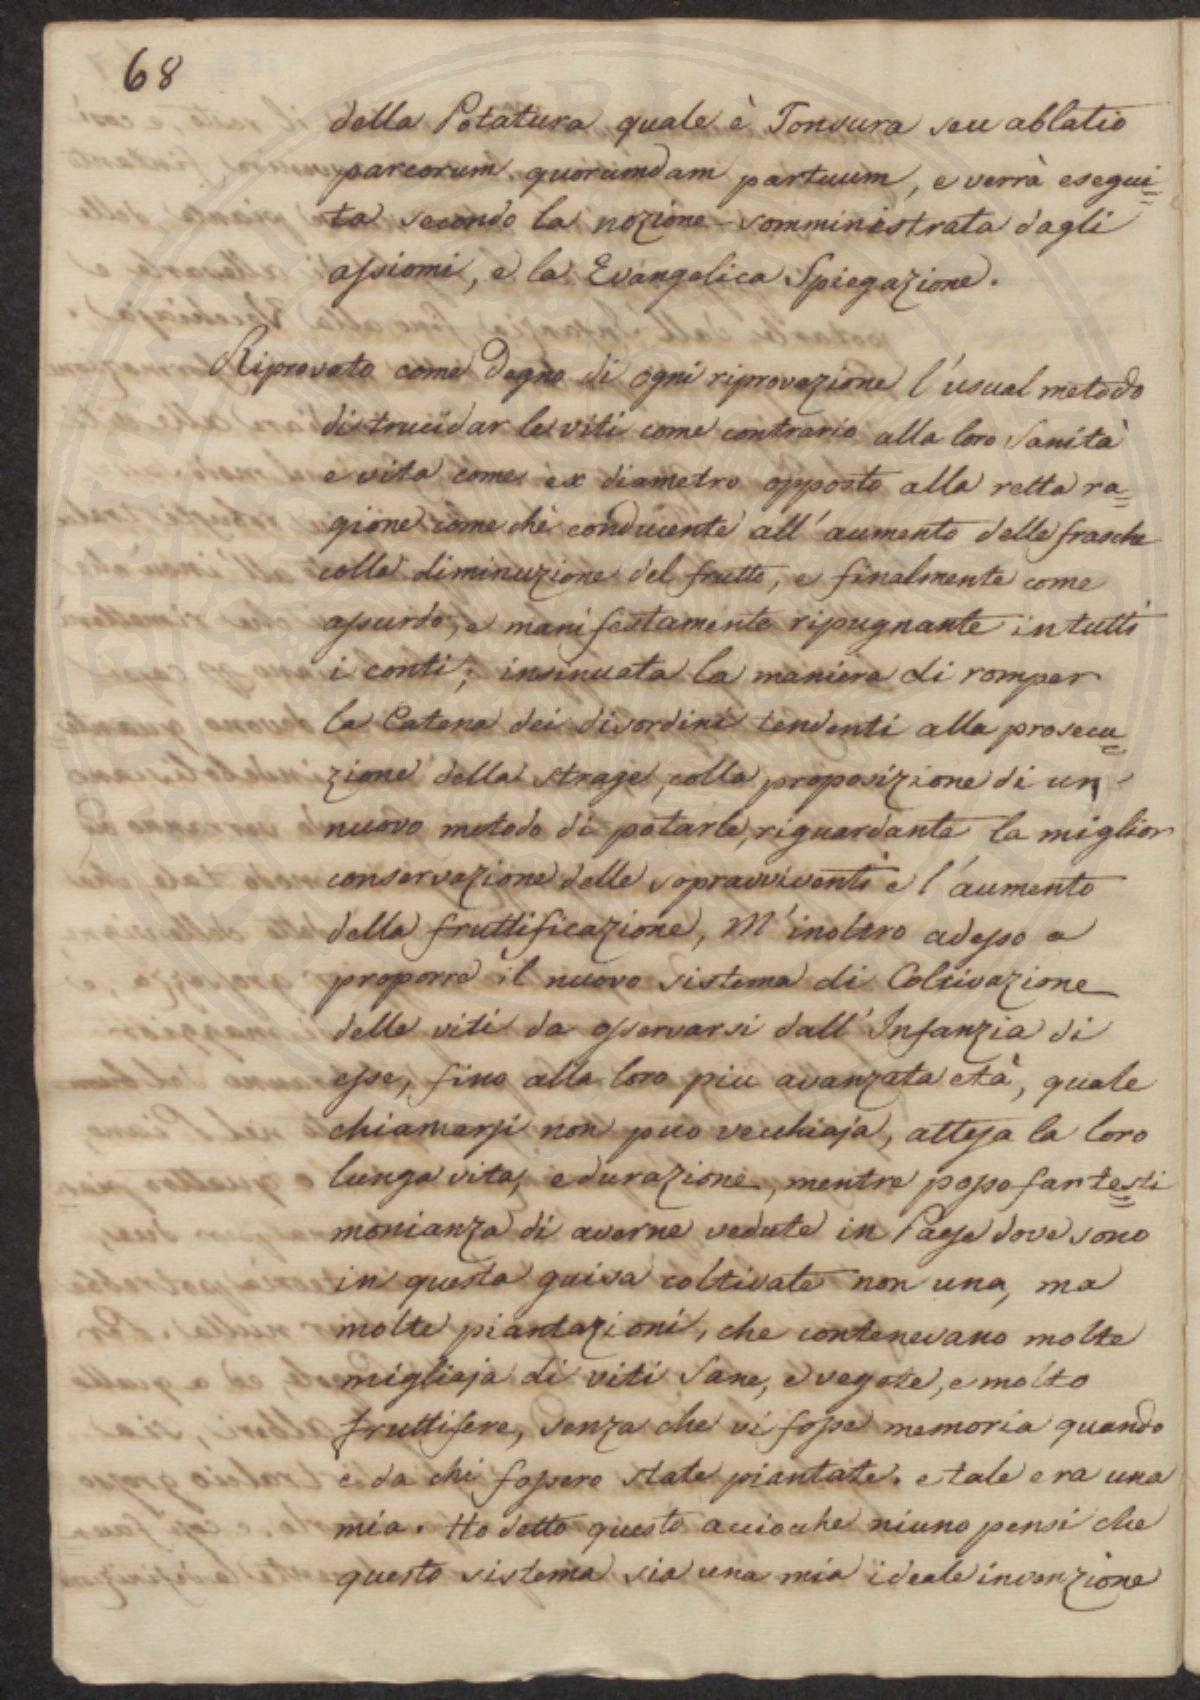 68
della Potatura quale è Tonsura seu ablatio
parcorum quorumdam partuum, e verrà esegui=
ta secondo la nozione somministrata dagli
assiomi, e la Evangelica Spiegazione.
Riprovato come Degno di ogni riprovazione l'usual metodo
di trucidar le viti come contrario alla loro Sanità
e vita come ex diametro opposto alla retta ra=
gione come chè conducente all'aumento delle frasche
colla diminuzione del frutto, e finalmente come
assurdo, e manifestamente ripugnante in tutti
i conti; insinuata la maniera di romper
la Catena dei disordini tendenti alla prosecu=
zione della strage, colla proposizione di un
nuovo metodo di potarle, riguardante la miglior
conservazione delle sopravviventi e l'aumento
della fruttificazione, M'inoltro adesso a
proporre il nuovo sistema di Coltivazione
delle viti da osservarsi dall'Infanzia di
esse, fino alla loro piu avanzata età, quale
chiamarsi non puo vecchiaja, attesa la loro
lunga vita, e durazione, mentre posso far testi=
monianza di averne vedute in Paese dove sono
in questa guisa coltivate non una, ma
molte piantazioni, che contenevano molte
migliaja di viti Sane, e vegete, e molto
fruttifere, Senza che vi fosse memoria quando
e da chi fossero state piantate. e tale era una
mia. Ho detto questo acciocche niuno pensi che
questo sistema sia una mia ideale invenzione